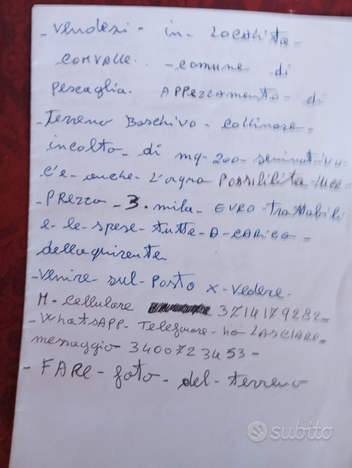 - Vendesi - in - Località =
CONVALLE. - comune - di
Pescaglia. APPezzamento - di
- Terreno Boschivo - collinare =
incolto - di mq - 200 -
c'è - anche - L'acqua Possibilità - luce =
- PRezzo - 3 - mila - EVRO - trattabili
e - le - spese - tutte - A - CARico =
dellaquirente
- Venire sul - Posto x - Vedere -
N - cellulare 3714179282 -
- WhatsAPP - Telefonare - ho LASCIARe -
messaggio 3400723453 -
- FARe - foto - del - terreno
subito